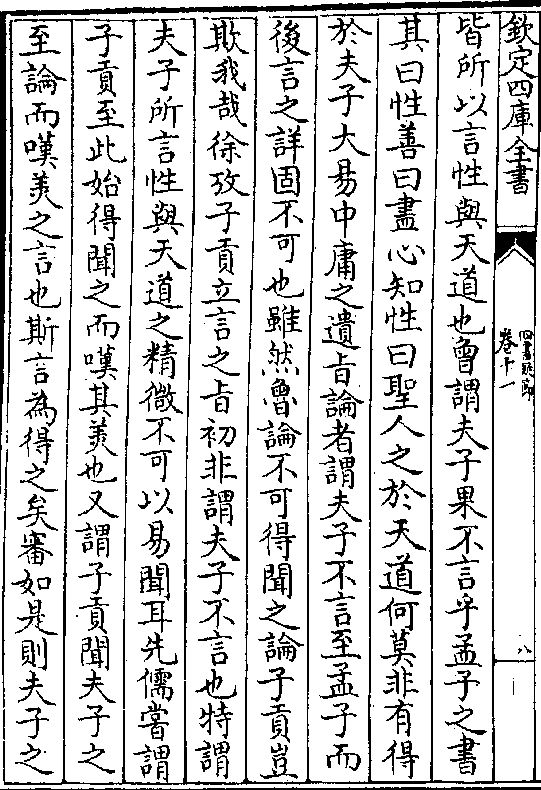 欽定四庫全書
四書疑節
卷十一
八
皆所以言性與天道也曾謂夫子果不言乎孟子之書
其曰性善曰盡心知性曰聖人之於天道何莫非有得
於夫子大易中庸之遺旨論者謂夫子不言至孟子而
後言之詳固不可也雖然魯論不可得聞之論子貢豈
欺我哉徐攷子貢立言之旨初非謂夫子不言也特謂
夫子所言性與天道之精微不可以易聞耳先儒嘗謂
子貢至此始得聞之而嘆其羙也又謂子貢聞夫子之
至論而嘆羙之言也斯言為得之矣審如是則夫子之